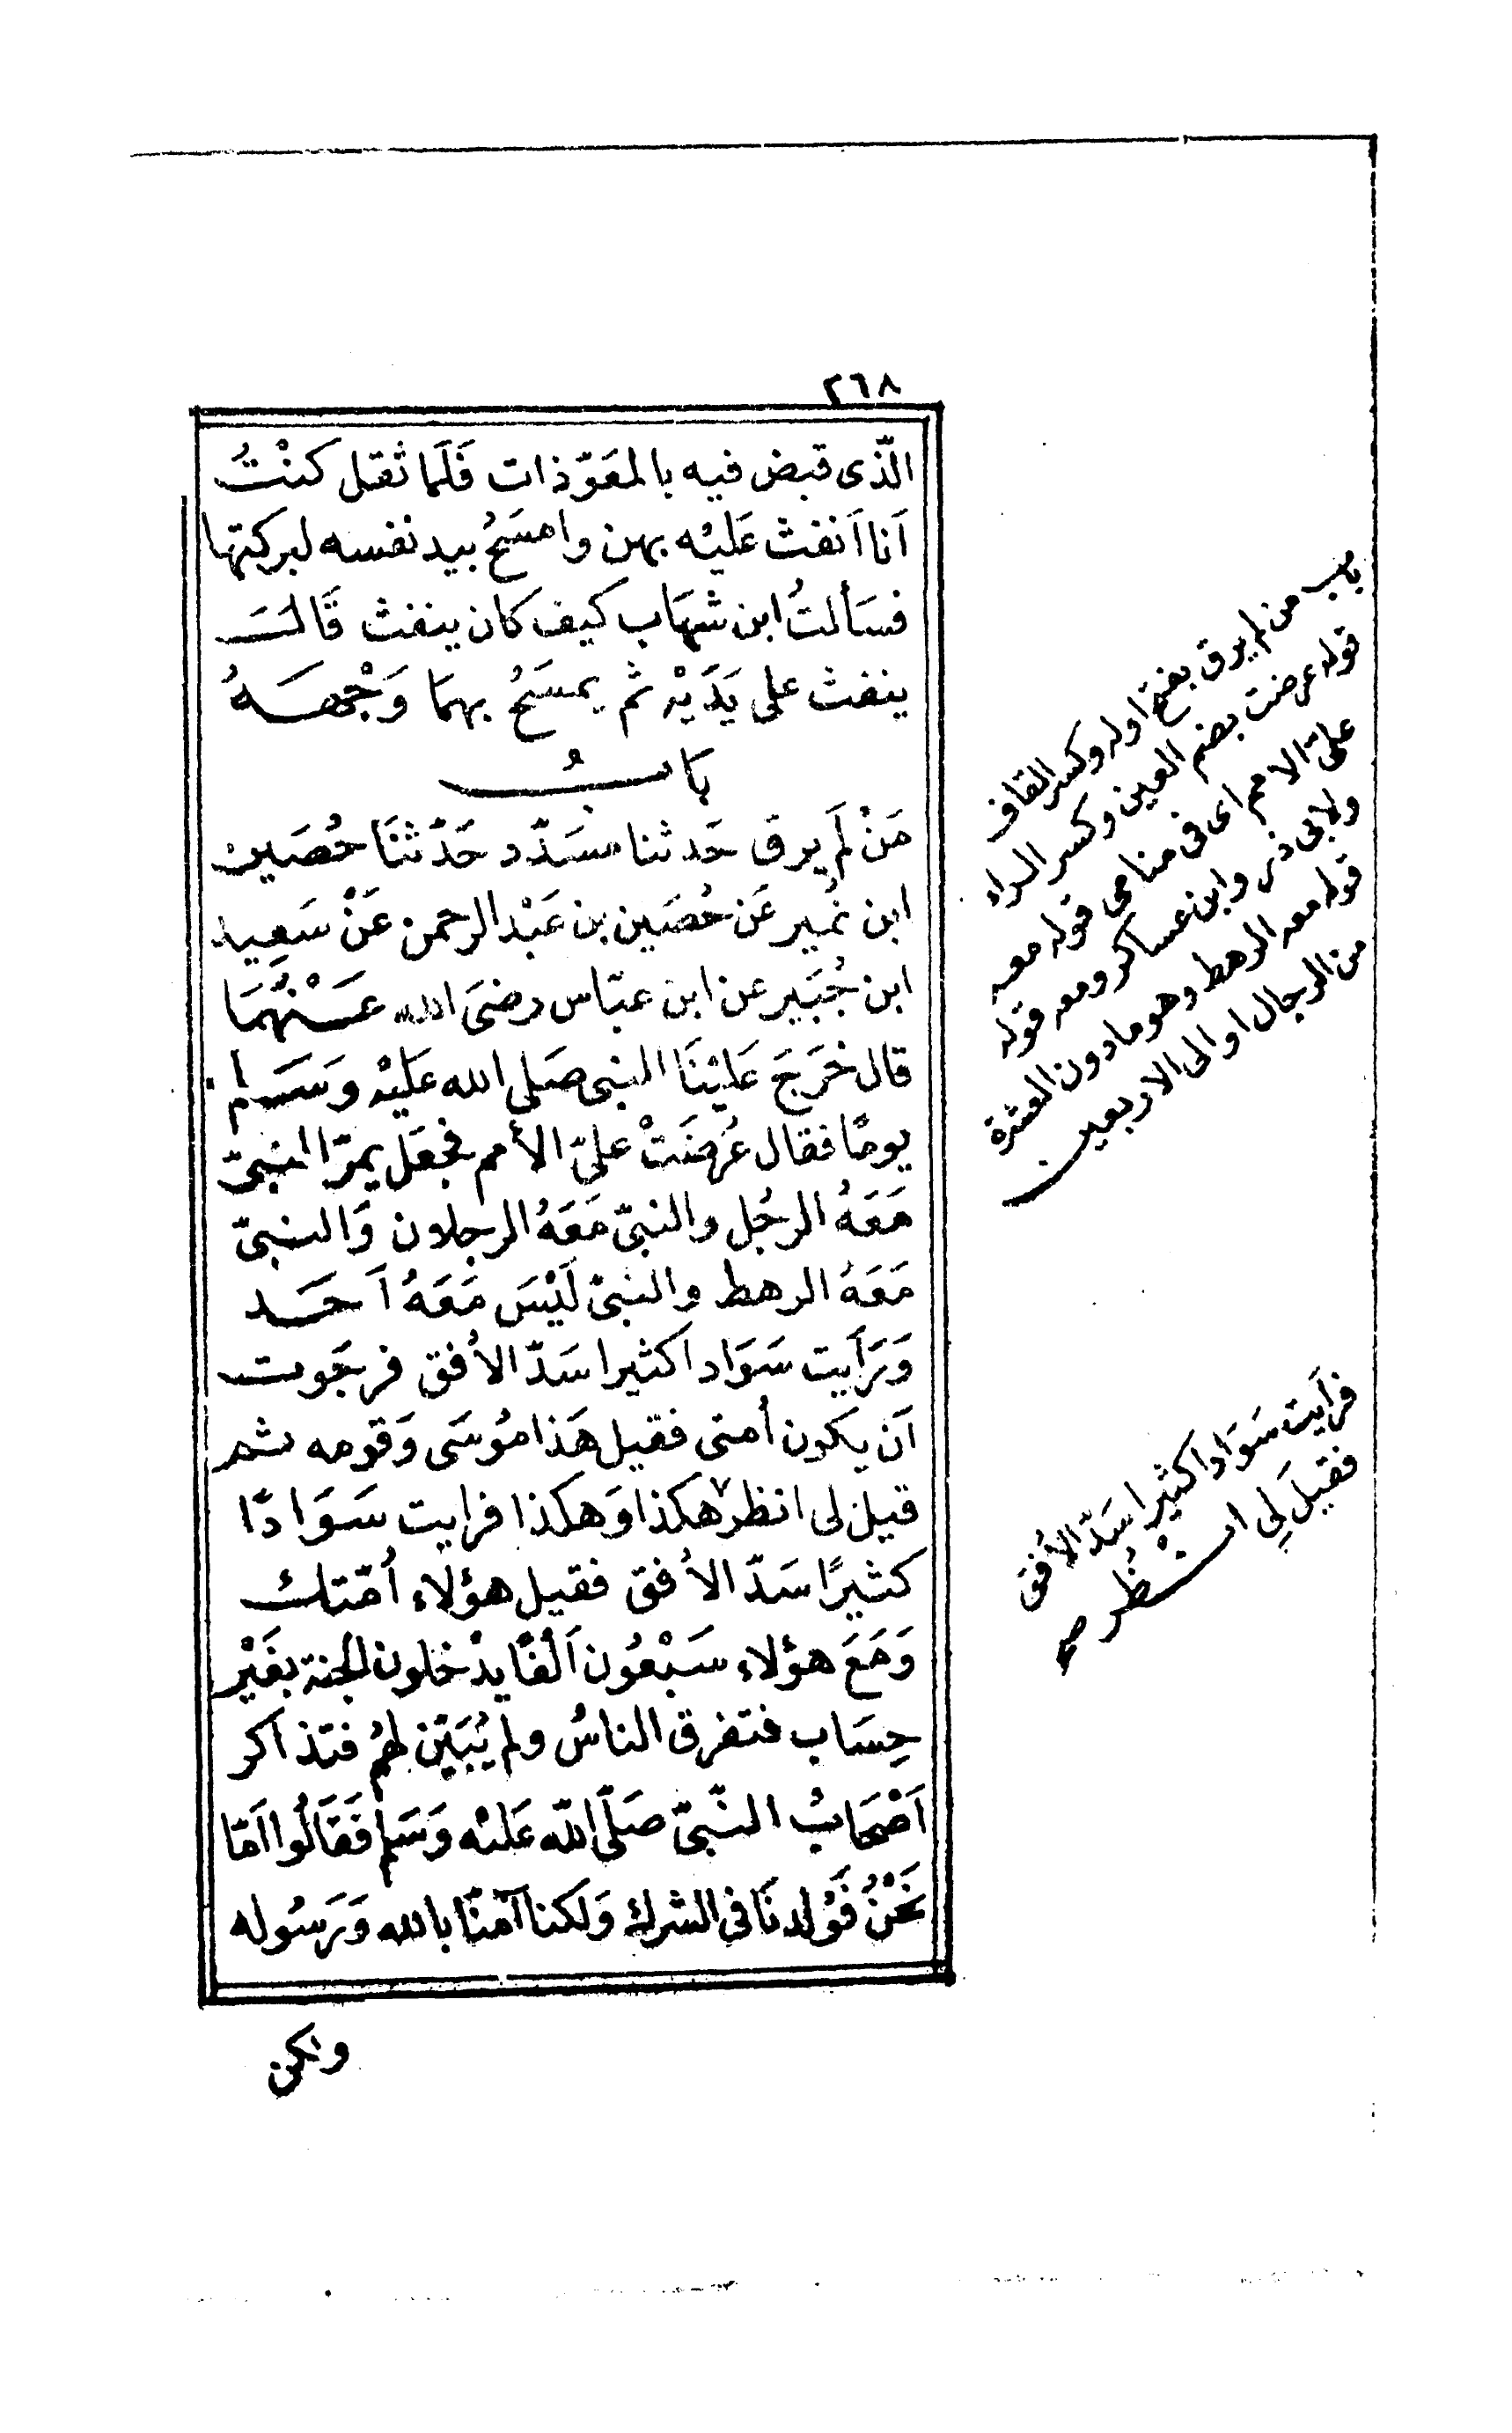 ٢٦٨
الّذى قبض فيه بالمعَوّذات فَلَما ثقل كنْتُ
اَنا اَنفث عَليْه بهن وامسَحُ بيد نفسه لبركتها
فسَألتُ ابن شهَاب كيف كان ينفث قَالَ
ينفث على يَدَيْه ثم يمسَحُ بهمَا وَجْهَهُ
بَابُ
مَنْ لَم يرق حَدثنا مسَدّد حَدّثنَا حُصَين
ابن نُمَير عَن حُصَين بن عَبْد الرحمن عَنْ سَعِيد
ابن جُبَير عن ابن عبّاس رضىَ الله عَنْهُمَا
قال خَرَجَ عَليْنَا النبى صَلى الله عَليْه وَسَلم
يومًا فقال عُرضَتْ علىّ الأمم فجعَل يمرّ النبىّ
مَعَهُ الرجُل والنبىّ مَعَهُ الرجلان وَالنبىّ
مَعَهُ الرهط والنبىّ لَيْسَ مَعَهُ اَحَد
وَرَأيت سَوَادا كثيرا سَدّ الأفق فرجَوت
اَن يكون أمتى فقيل هَذا مُوسَى وَقومه ثم
قيل لى انظر هكذا وَهكذا فرايت سَوَادًا
كثيرًا سَدّ الأفق فقيل هؤلاء أمّتك
وَمَعَ هؤلاء سَبْعُون اَلْفًا يدْخلون الجنة بغَيْر
حِسَاب فتفرق الناسُ ولم يُبَيَّن لهُم فتذاكر
اَصْحَابُ النَّبىّ صَلّى الله عَليْه وَسَلم فَقَالُوا اَمّا
نَحْنُ فَوُلدنَا فى الشرك وَلكنا آمَنّا بالله وَرَسُوله
ولكن
باب من لم يرق بفتح اوله وكسر القاف
قوله عرضت بضم العين وكسر الراء
علىّ الامم اى فى منامى قوله معه
ولابى ذر وابن عساكر ومعه قوله
قوله معه الرهط وهو ما دون العشرة
من الرجال او الى الاربعين
فرَأيت سَوَادا كثيرا سَدّ الأفق
فقيلَ لِى انْظُر صح